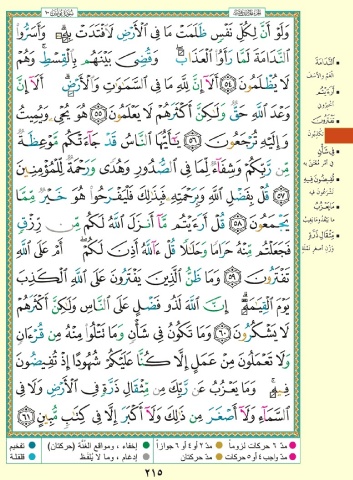 وَلَوْ أَنَّ لِكُلِّ نَفْسٍ ظَلَمَتْ مَا فِى ٱلْأَرْضِ لَٱفْتَدَتْ بِهِۦ ۗ وَأَسَرُّوا۟
ٱلنَّدَامَةَ لَمَّا رَأَوُا۟ ٱلْعَذَابَ ۖ وَقُضِىَ بَيْنَهُم بِٱلْقِسْطِ ۚ وَهُمْ
لَا يُظْلَمُونَ ٥٤ أَلَآ إِنَّ لِلَّهِ مَا فِى ٱلسَّمَـٰوَٰتِ وَٱلْأَرْضِ ۗ أَلَآ إِنَّ
وَعْدَ ٱللَّهِ حَقٌّ وَلَـٰكِنَّ أَكْثَرَهُمْ لَا يَعْلَمُونَ ٥٥ هُوَ يُحْىِۦ وَيُمِيتُ
وَإِلَيْهِ تُرْجَعُونَ ٥٦ يَـٰٓأَيُّهَا ٱلنَّاسُ قَدْ جَآءَتْكُم مَّوْعِظَةٌ
مِّن رَّبِّكُمْ وَشِفَآءٌ لِّمَا فِى ٱلصُّدُورِ وَهُدًى وَرَحْمَةٌ لِّلْمُؤْمِنِينَ
٥٧ قُلْ بِفَضْلِ ٱللَّهِ وَبِرَحْمَتِهِۦ فَبِذَٰلِكَ فَلْيَفْرَحُوا۟ هُوَ خَيْرٌ مِّمَّا
يَجْمَعُونَ ٥٨ قُلْ أَرَءَيْتُم مَّآ أَنزَلَ ٱللَّهُ لَكُم مِّن رِّزْقٍ
فَجَعَلْتُم مِّنْهُ حَرَامًا وَحَلَـٰلًا قُلْ ءَآللَّهُ أَذِنَ لَكُمْ ۖ أَمْ عَلَى ٱللَّهِ
تَفْتَرُونَ ٥٩ وَمَا ظَنُّ ٱلَّذِينَ يَفْتَرُونَ عَلَى ٱللَّهِ ٱلْكَذِبَ
يَوْمَ ٱلْقِيَـٰمَةِ ۗ إِنَّ ٱللَّهَ لَذُو فَضْلٍ عَلَى ٱلنَّاسِ وَلَـٰكِنَّ أَكْثَرَهُمْ
لَا يَشْكُرُونَ ٦٠ وَمَا تَكُونُ فِى شَأْنٍ وَمَا تَتْلُوا۟ مِنْهُ مِن قُرْءَانٍ
وَلَا تَعْمَلُونَ مِنْ عَمَلٍ إِلَّا كُنَّا عَلَيْكُمْ شُهُودًا إِذْ تُفِيضُونَ
فِيهِ ۚ وَمَا يَعْزُبُ عَن رَّبِّكَ مِن مِّثْقَالِ ذَرَّةٍ فِى ٱلْأَرْضِ وَلَا فِى
ٱلسَّمَآءِ وَلَآ أَصْغَرَ مِن ذَٰلِكَ وَلَآ أَكْبَرَ إِلَّا فِى كِتَـٰبٍ مُّبِينٍ ٦١
النَّدَامَةَ
الغَمَّ والأَسَف
أَرَءَيْتُم
أخبروني
تَفْتَرُونَ
تكذبون
فِي شَأْنٍ
تُفِيضُونَ فِيهِ
مَا يَعْزُبُ
مِثْقَالِ ذَرَّةٍ
مدّ ٦ حركات لزوماً مدّ ٢ أو ٤ أو ٦ جوازاً إخفاء، ومواقع الغُنَّة (حركتان) تفخيم
مدّ واجب ٤ أو ٥ حركات مدّ حركتان إدغام، وما لا يُلفَظ قلقلة
٢١٥